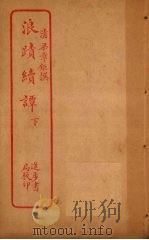 清梁章鉅撰
浪蹟續談 下
進步書局校印